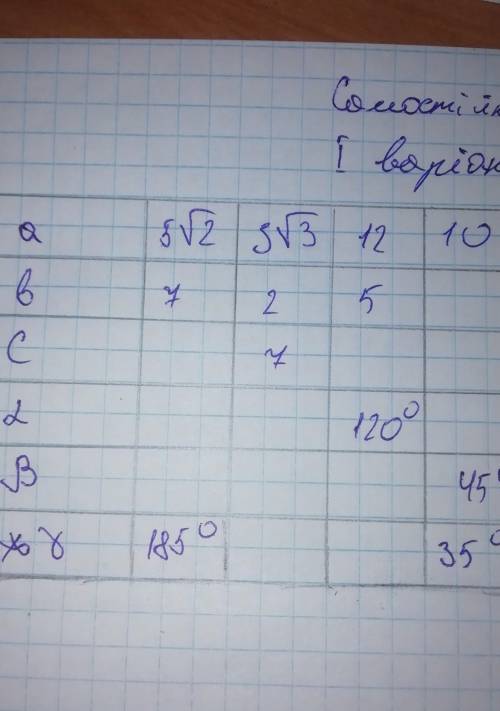 Самостійн
I варіан
a 5√2 5√3 12 10
в 7 2 5
C 7
α 120°
β 45°
γ 185° 35°